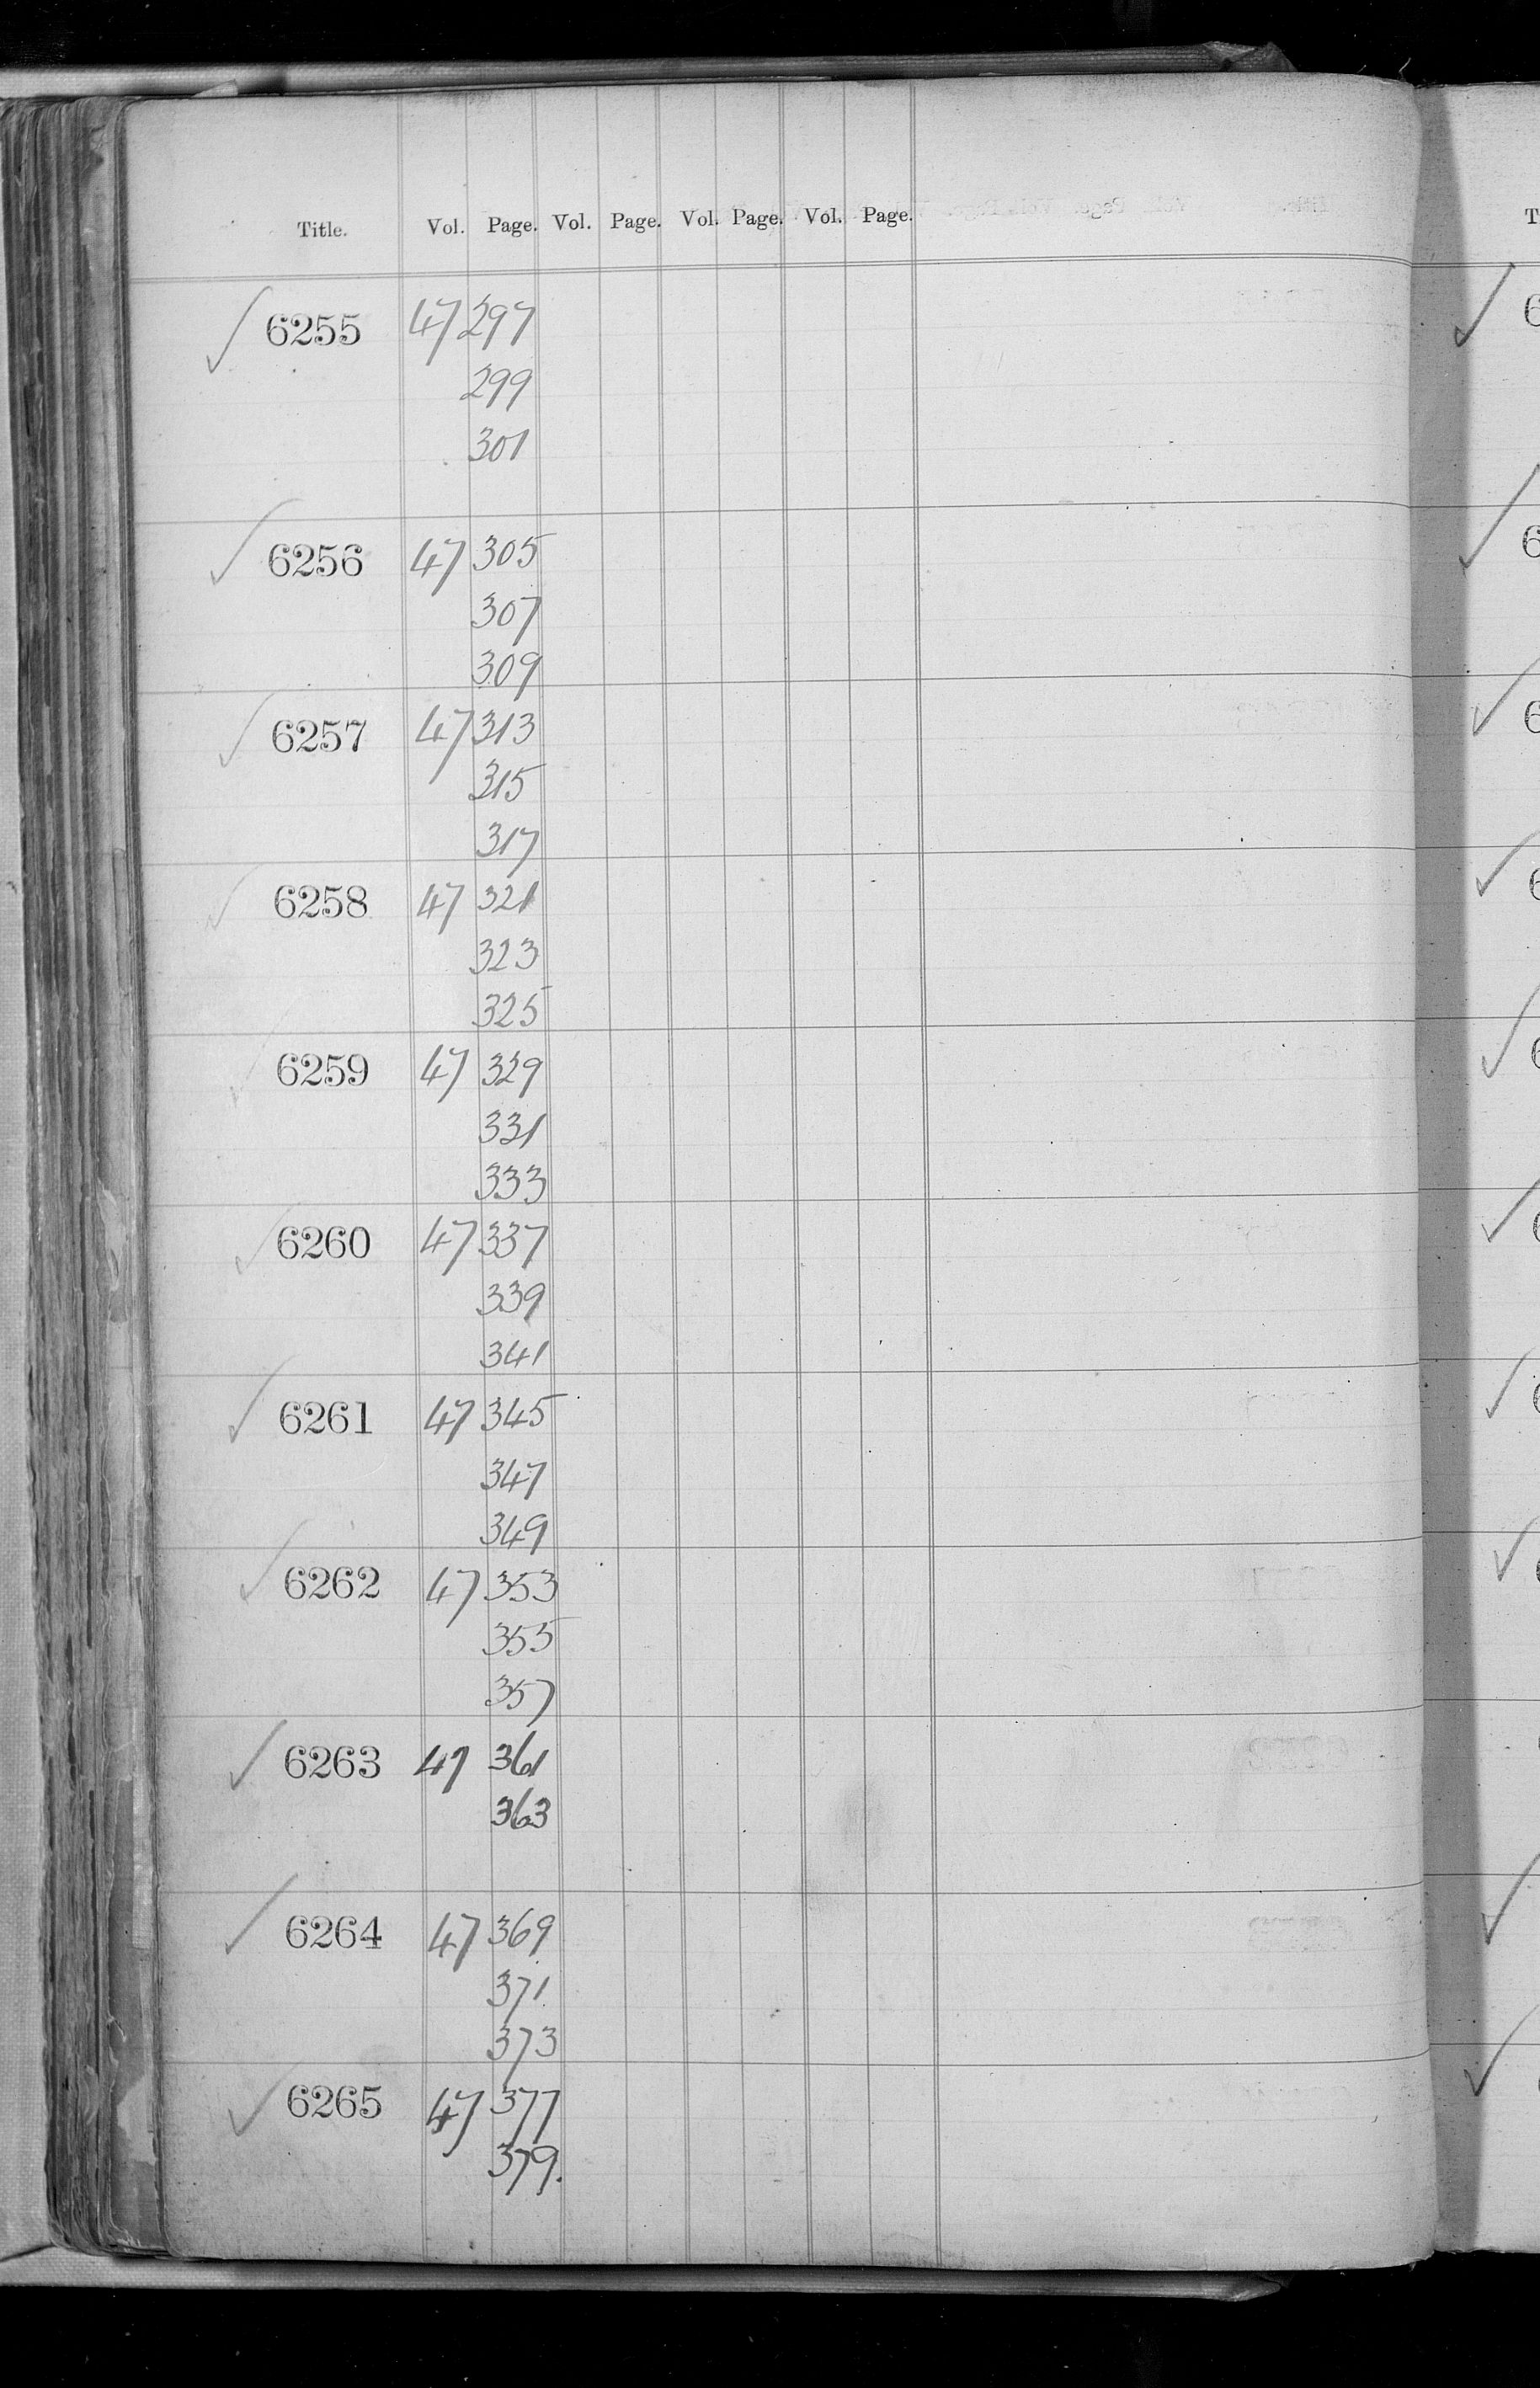 Title. Vol. Page. Vol. Page. Vol. Page. Vol. Page.
✓ 6255 47 297
299
301
✓ 6256 47 305
307
309
✓ 6257 47 313
315
317
✓ 6258 47 321
323
325
✓ 6259 47 329
331
333
✓ 6260 47 337
339
341
✓ 6261 47 345
347
349
✓ 6262 47 353
355
357
✓ 6263 47 361
363
✓ 6264 47 369
371
373
✓ 6265 47 377
379.